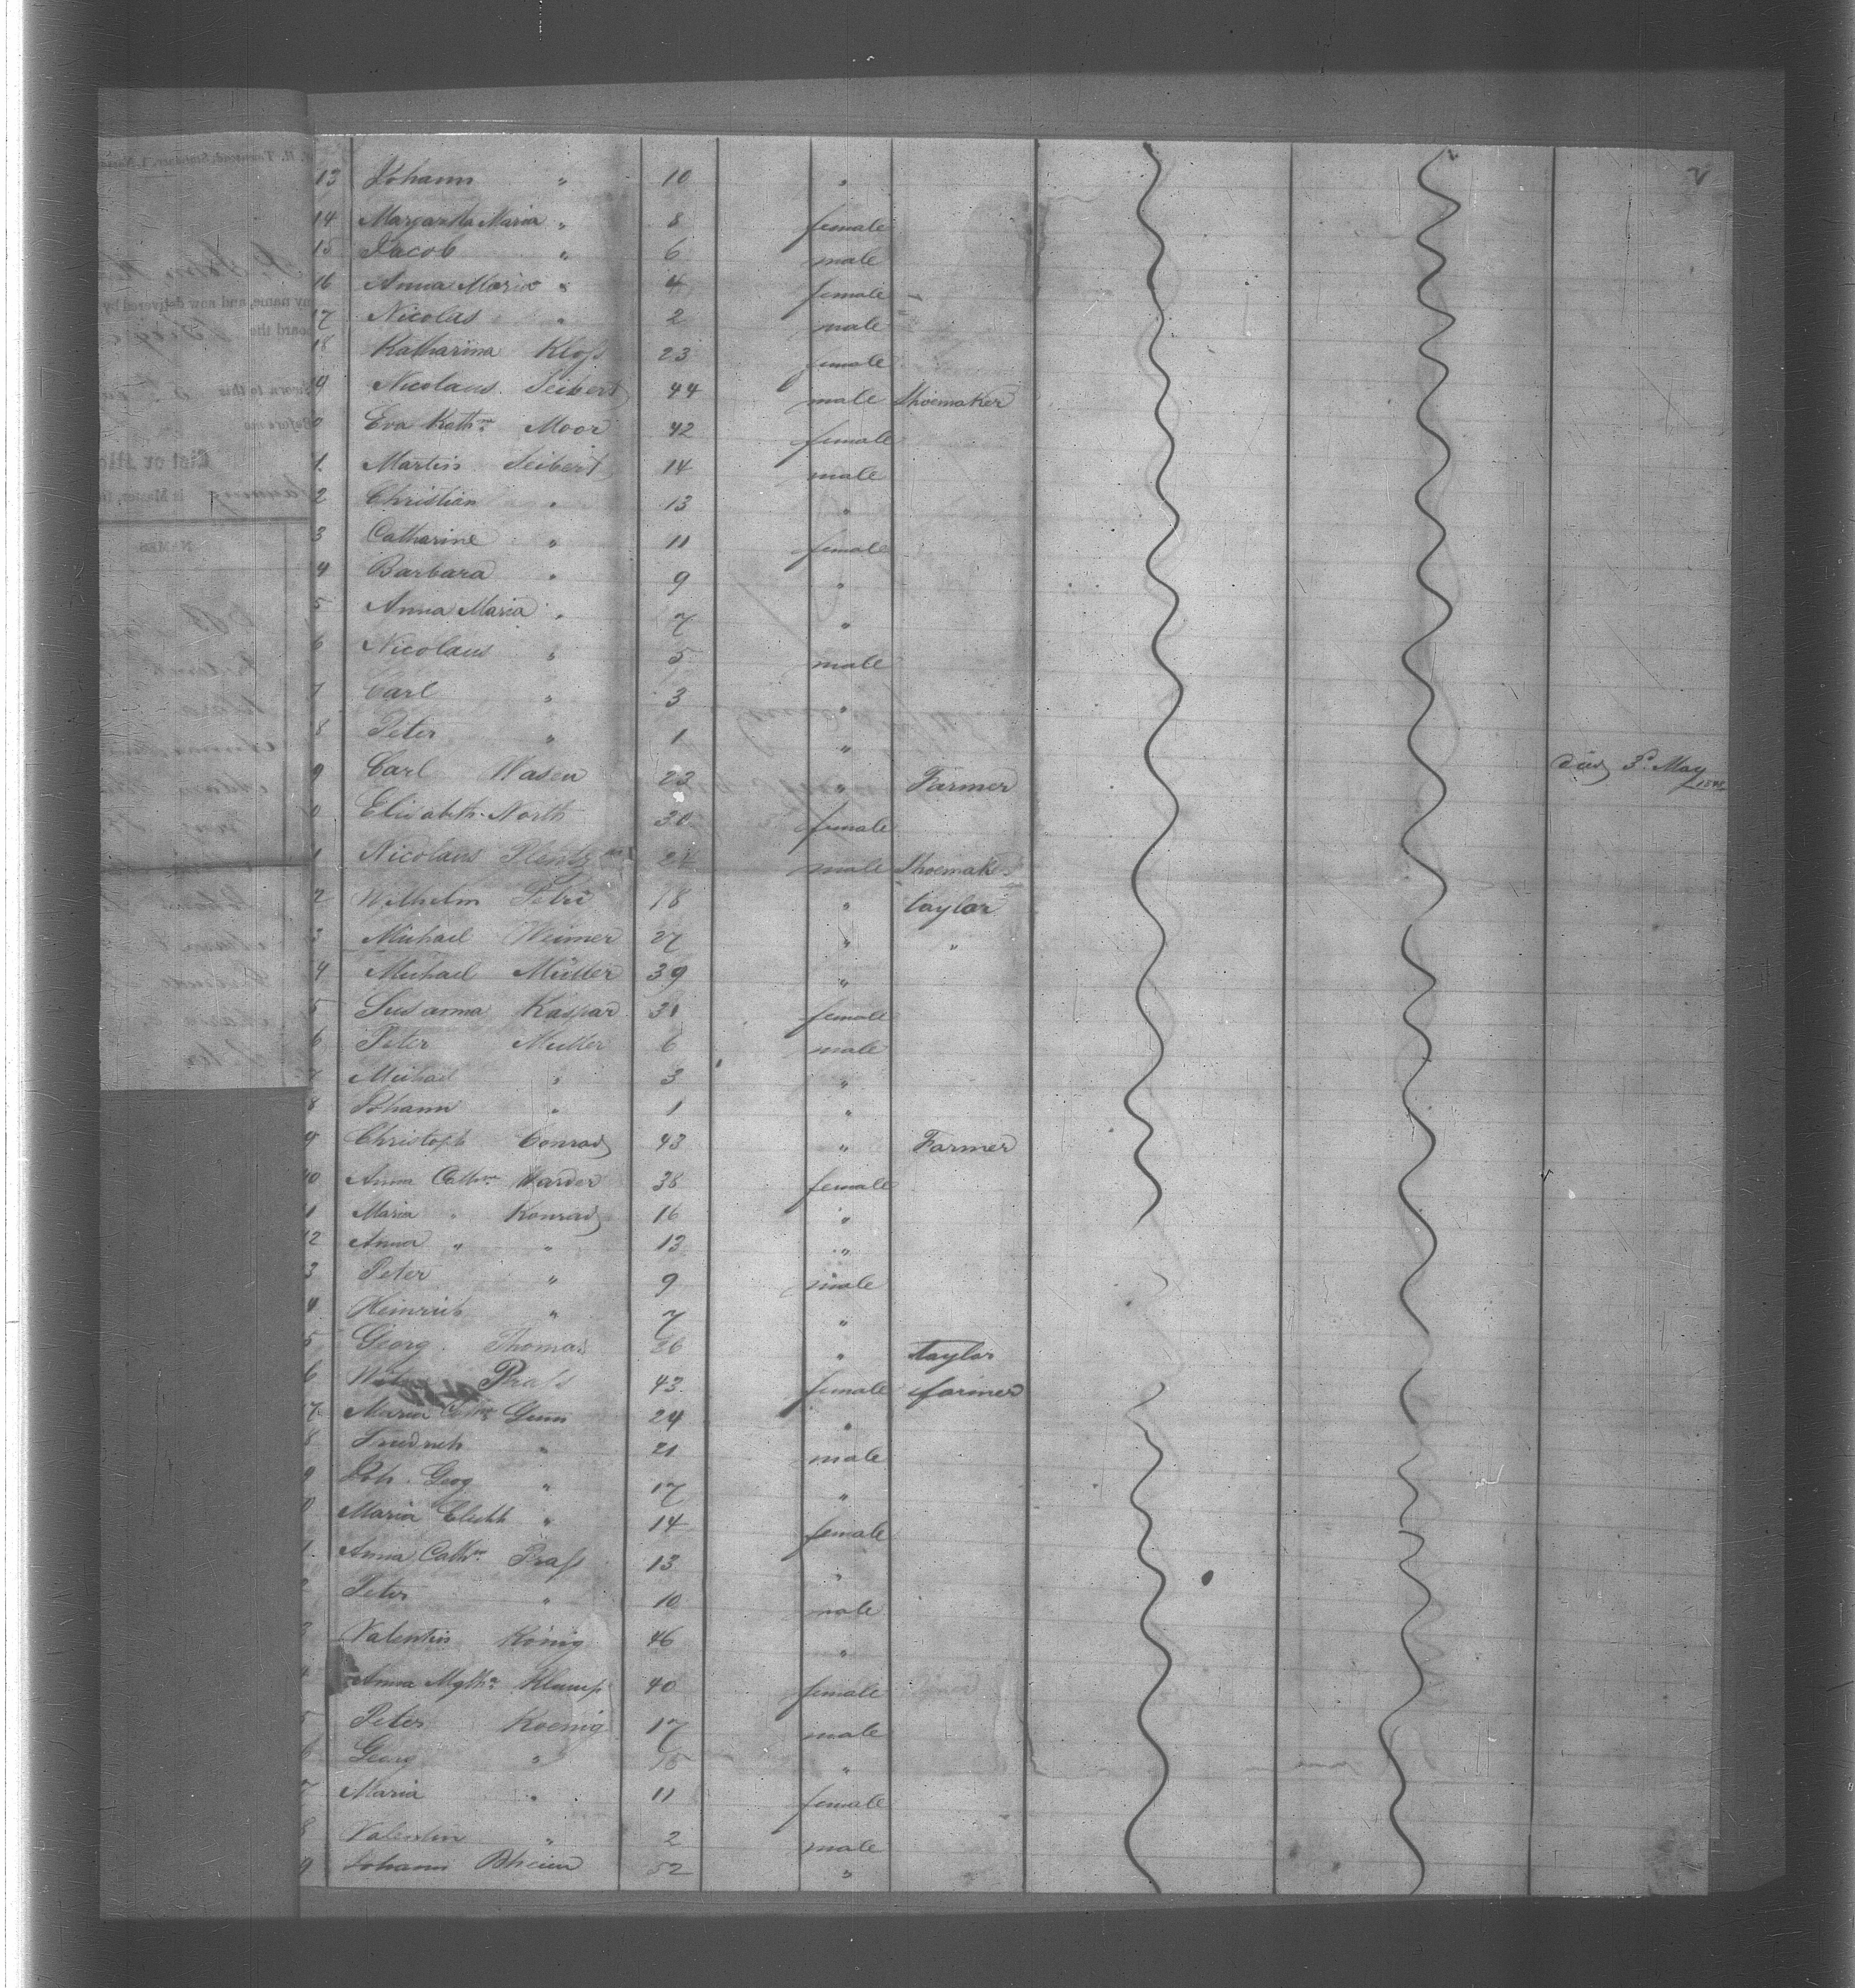 13 Johann " 10 "
14 Margaretha Maria " 8 female
15 Jacob " 6 male
16 Anna Maria " 4 female
17 Nicolas " 2 male
18 Katharina Kloss 23 female
19 Nicolaus Seibert 44 male Shoemaker
0 Eva Kath.ne Moor 42 female
1 Martin Seibert 14 male
2 Christian " 13 "
3 Catharine " 11 female
4 Barbara " 9 "
5 Anna Maria " 7 "
6 Nicolaus " 5 male
7 Carl " 3 "
8 Peter " 1 "
9 Carl Wasen 23 " Farmer died 3d May
0 Elisabeth North 30 female
1 Nicolaus 24 male Shoemaker
2 Wilhelm Petri 18 " taylor
3 Michael Weimer 27 " "
4 Michael Müller 39 "
5 Susanna Kaspar 31 female
6 Peter Muller 6 male
7 Michael " 3 "
8 Johann " 1 "
9 Christoph Conrad 43 " Farmer
40 Anna Cath.ne Harder 38 female
1 Maria " Konrad 16 "
12 Anna " " 13 "
3 Peter " 9 male
4 Heinrich " 7 "
5 Georg Thomas 26 " taylor
6 Prass 43 female farmer
17 Maria 24 "
8 Friedrich " 21 male
9 Joh. Georg " 17 "
0 Maria Elisbh " 14 female
1 Anna Cath.ne Prass 13 "
2 Peter " 10 male
3 Valentin König 46 "
4 Anna Mgth.a Klump 40 female
5 Peter Koenig 17 male
6 Georg " 15 "
7 Maria " 11 female
8 Valentin " 2 male
9 Johann 52 "